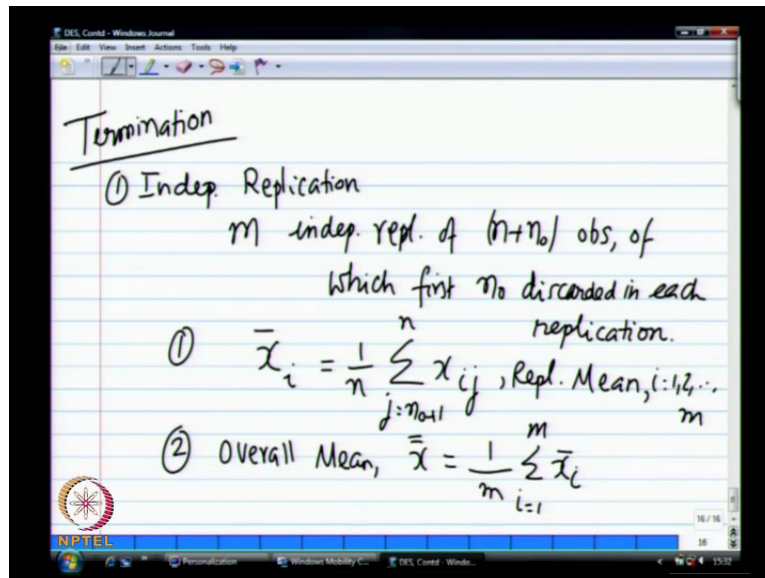 DES, Contd - Windows Journal
File Edit View Insert Actions Tools Help
Termination
① Indep. Replication
m indep. repl. of (n+n₀) obs, of
which first n₀ discarded in each
replication.
① x̄ᵢ = 1/n ∑_{j=n₀+1}^{n} xᵢⱼ, Repl. Mean, i=1,2,..,
m
② Overall Mean, x̿ = 1/m ∑_{i=1}^{m} x̄ᵢ
16/16
NPTEL
16
Personalization Windows Mobility C... DES, Contd - Windo... 15:32